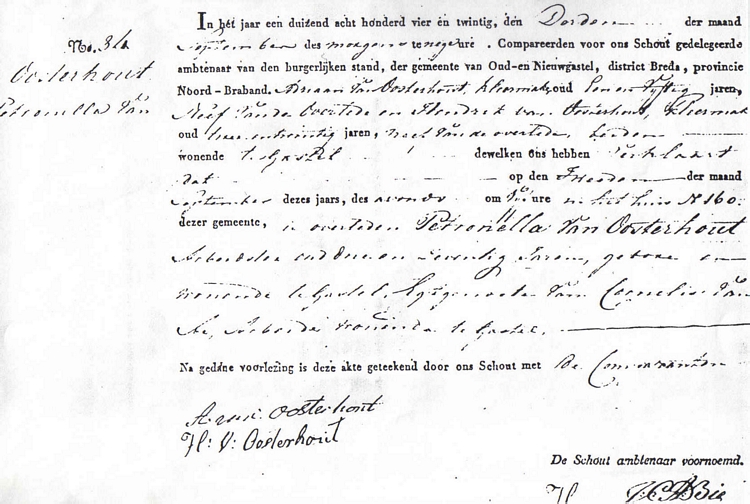 No. 36
Oosterhout
Petronella Van
In het jaar een duizend acht honderd vier en twintig, den Derden der maand
September des morgens te negen ure . Compareerden voor ons Schout gedelegeerde
ambtenaar van den burgerlijken stand, der gemeente van Oud-en Nieuwgastel, district Breda, provincie
Noord-Braband. Adriaan Van Oosterhout, Kleermak, oud Een en Vyftig jaren,
Neef van de Overlede en Hendrik van Oosterhout, Kleermak
oud twee en twintig jaren, neef van de overlede, beiden
wonende te Gastel dewelken ons hebben Verklaart
dat op den Tweeden der maand
September dezes jaars, des avonds om ure in het huis N 160
dezer gemeente, is overleden Petronella Van Oosterhout
Arbeidster oud en Seventig Jaren, gebore en
wonende te Gastel, Egtgenoote Van Cornelis Van
Arbeider wonende te Gastel.
Na gedane voorlezing is deze akte geteekend door ons Schout met De Comparanten
A van Oosterhout
H: V: Oosterhout
De Schout ambtenaar voornoemd.